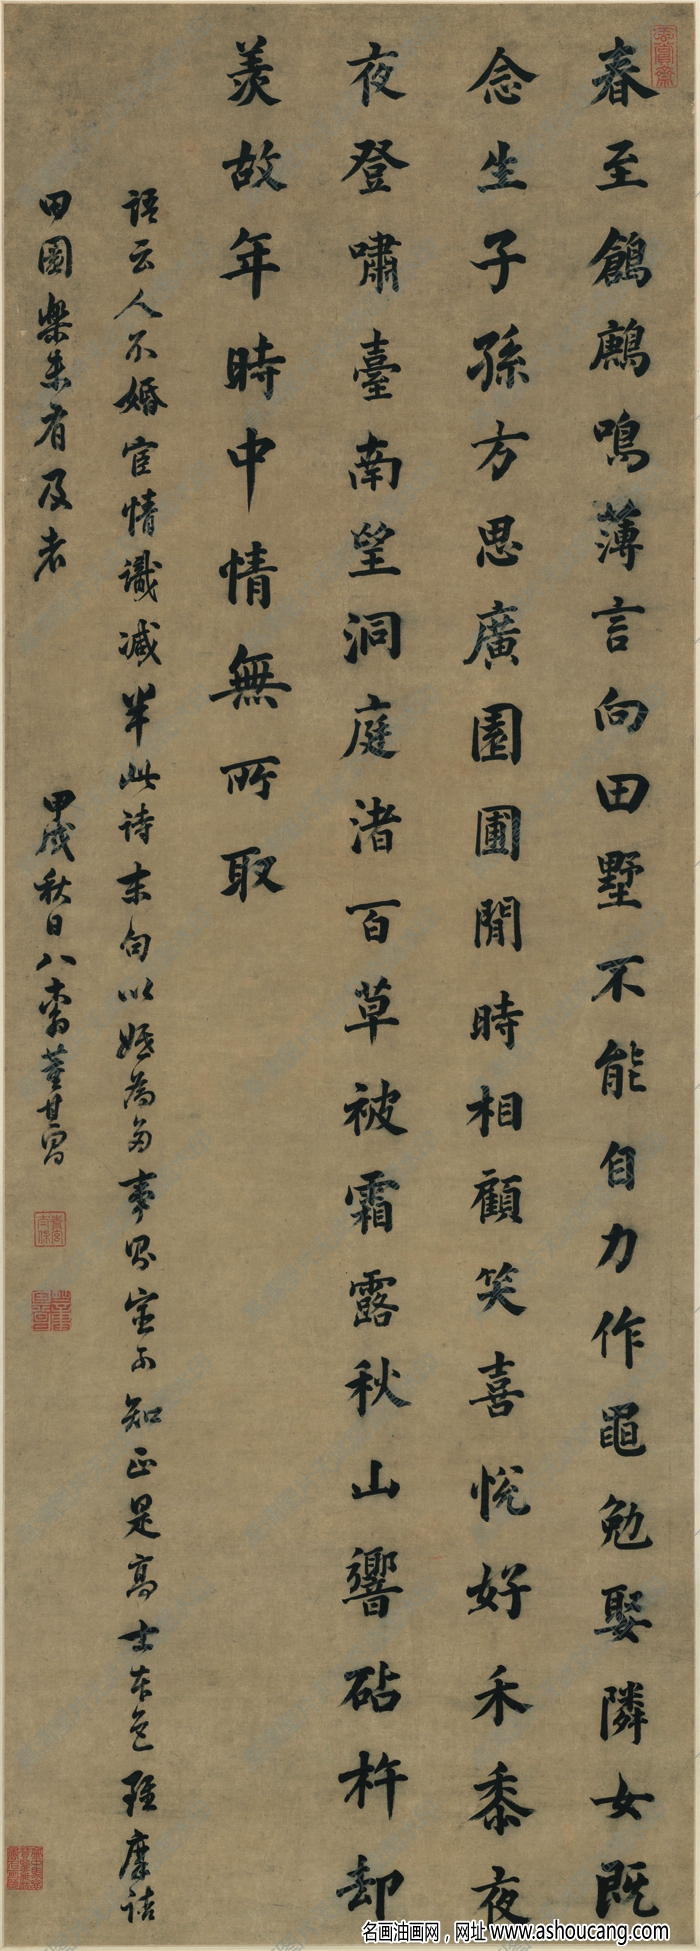 春至鶬鶊鳴薄言向田墅不能自力作黽勉娶隣女既
念生子孫方思廣園圃閒時相顧笑喜悅好禾黍夜
夜登嘯臺南望洞庭渚百草被霜露秋山響砧杵却
羨故年時中情無所取
語云人不婚宦情識減半此詩末句以婚為多事則宦可知正是高士本色雖摩詰
田園樂未有及者
甲戌秋日八十翁董其昌
名画油画网，网址 www.ashoucang.com